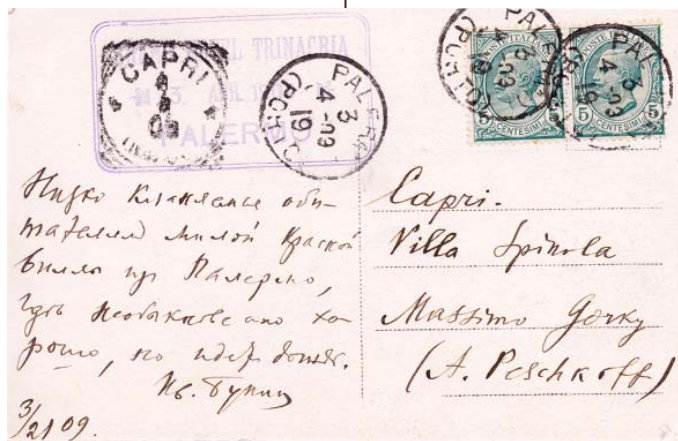 HOTEL TRINACRIA
3. APR. 19
PALERMO
CAPRI
09
PALERMO
3
4-09
19
(PORTO)
PALER
POSTE ITALIANE
5 CENTESIMI 5
POSTE ITALIANE
5 CENTESIMI 5
Низко кланяемся оби-
тателям милой Красной
виллы из Палермо,
гдѣ необыкновенно хо-
рошо, но идет дождь.
Ив. Бунин
3/21 09.
Capri.
Villa Spinola
Massimo Gorky
(A. Peschkoff)